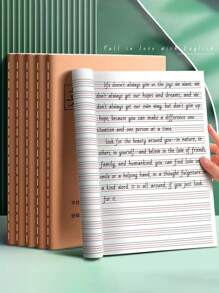 Fall in love with English
life doesn't always give us the joys we want. we
don't always get our hopes and dreams, and we
don't always get our own way. but don't give up
hope, because you can make a difference one
situation and one person at a time.
look for the beauty around you--in nature, in
others, in yourself--and believe in the love of friends,
family, and humankind. you can find love in a
smile or a helping hand, in a thought fulgesture
a kind word. it is all around, if you just look
for it.